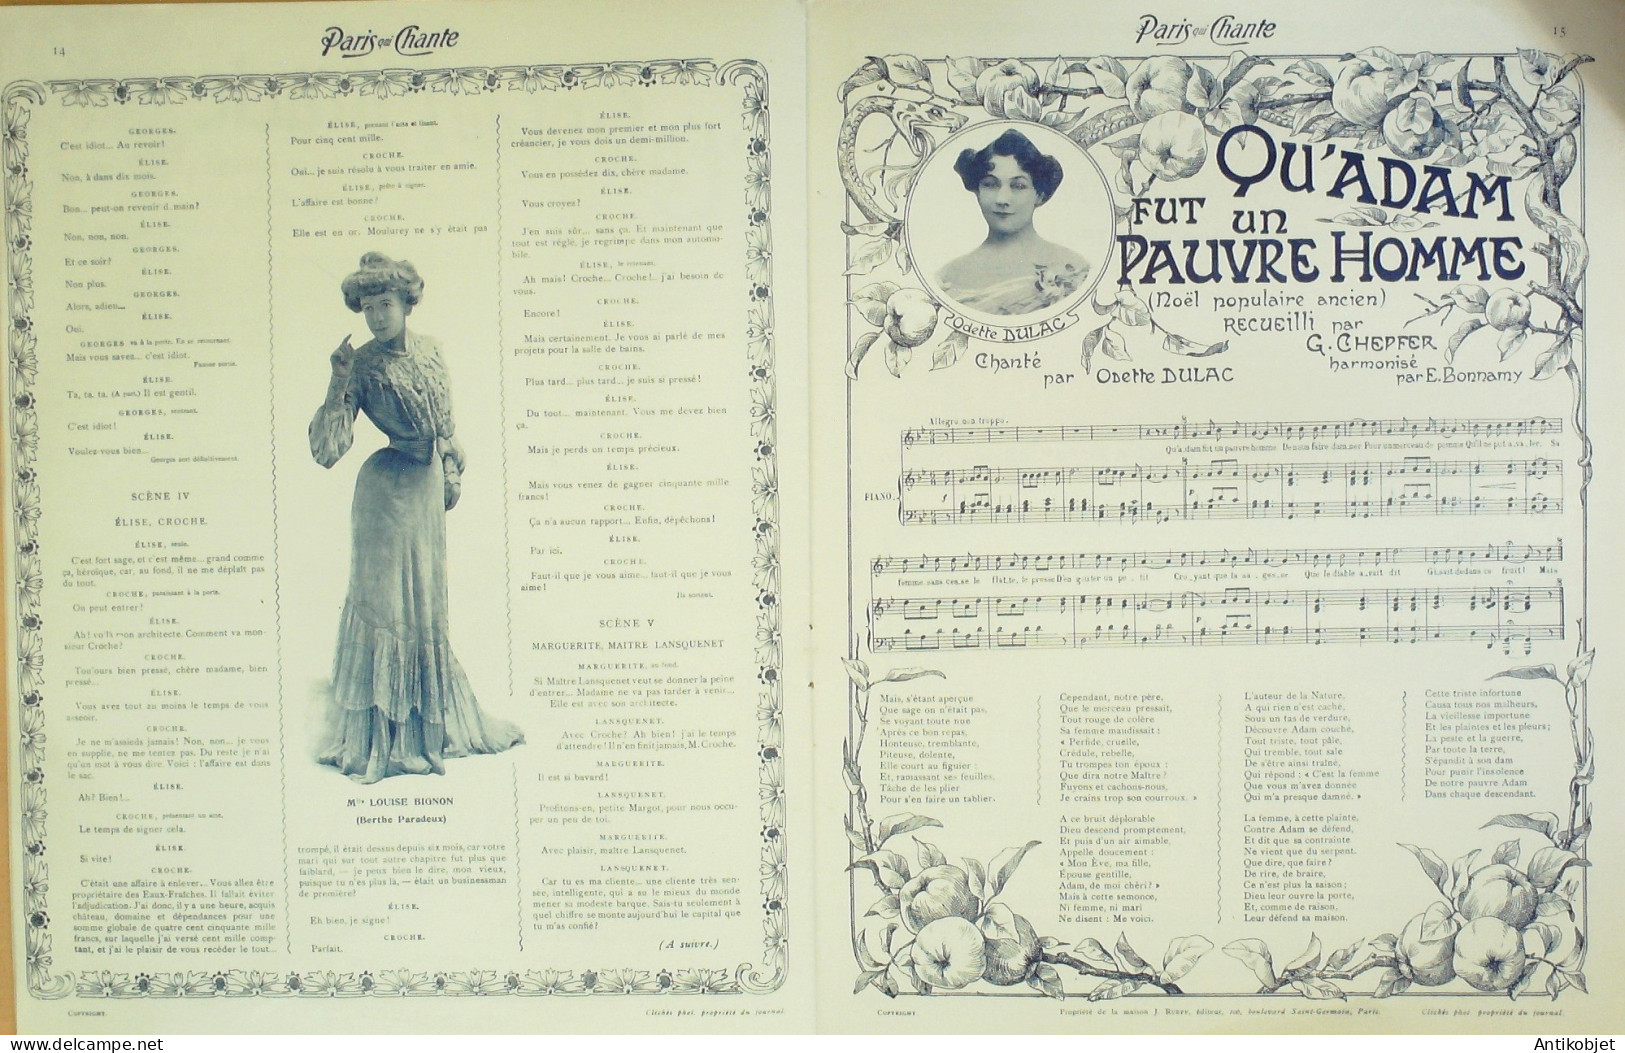 14
Paris qui Chante
GEORGES.
C'est idiot... Au revoir!
ÉLISE.
Non, à dans dix mois.
GEORGES.
Bon... peut-on revenir d. main?
ÉLISE.
Non, non, non.
GEORGES.
Et ce soir?
ÉLISE.
Non plus.
GEORGES.
Alors, adieu...
ÉLISE.
Oui.
GEORGES va à la porte. En se retournant.
Mais vous savez... c'est idiot.
Fausse sortie.
ÉLISE.
Ta, ta, ta. (A part.) Il est gentil.
GEORGES, rentrant.
C'est idiot!
ÉLISE.
Voulez-vous bien...
Georges sort définitivement.
SCÈNE IV
ÉLISE, CROCHE.
ÉLISE, seule.
C'est fort sage, et c'est même... grand comme
ça, héroïque, car, au fond, il ne me déplaît pas
du tout.
CROCHE, paraissant à la porte.
On peut entrer?
ÉLISE.
Ah! voilà mon architecte. Comment va mon-
sieur Croche?
CROCHE.
Toujours bien pressé, chère madame, bien
pressé...
ÉLISE.
Vous avez tout au moins le temps de vous
asseoir.
CROCHE.
Je ne m'assieds jamais! Non, non... je vous
en supplie, ne me tentez pas. Du reste je n'ai
qu'un mot à vous dire. Voici : l'affaire est dans
le sac.
ÉLISE.
Ah? Bien!...
CROCHE, présentant un acte.
Le temps de signer cela.
ÉLISE.
Si vite!
CROCHE.
C'était une affaire à enlever... Vous allez être
propriétaire des Eaux-Fraîches. Il fallait éviter
l'adjudication. J'ai donc, il y a une heure, acquis
château, domaine et dépendances pour une
somme globale de quatre cent cinquante mille
francs, sur laquelle j'ai versé cent mille comp-
tant, et j'ai le plaisir de vous recéder le tout...
ÉLISE, prenant l'acte et lisant.
Pour cinq cent mille.
CROCHE.
Oui... je suis résolu à vous traiter en amie.
ÉLISE, prête à signer.
L'affaire est bonne?
CROCHE.
Elle est en or. Moulurey ne s'y était pas
Mlle LOUISE BIGNON
(Berthe Paradeux)
trompé, il était dessus depuis six mois, car votre
mari qui sur tout autre chapitre fut plus que
faiblard, — je peux bien le dire, mon vieux,
puisque tu n'es plus là, — était un businessman
de première!
ÉLISE.
Eh bien, je signe!
CROCHE.
Parfait.
ÉLISE.
Vous devenez mon premier et mon plus fort
créancier, je vous dois un demi-million.
CROCHE.
Vous en possédez dix, chère madame.
ÉLISE.
Vous croyez?
CROCHE.
J'en suis sûr... sans ça. Et maintenant que
tout est réglé, je regrimpe dans mon automo-
bile.
ÉLISE, le retenant.
Ah mais! Croche... Croche!.. j'ai besoin de
vous.
CROCHE.
Encore!
ÉLISE.
Mais certainement. Je vous ai parlé de mes
projets pour la salle de bains.
CROCHE.
Plus tard... plus tard... je suis si pressé!
ÉLISE.
Du tout... maintenant. Vous me devez bien
ça.
CROCHE.
Mais je perds un temps précieux.
ÉLISE.
Mais vous venez de gagner cinquante mille
francs!
CROCHE.
Ça n'a aucun rapport... Enfin, dépêchons!
ÉLISE.
Par ici.
CROCHE.
Faut-il que je vous aime... faut-il que je vous
aime!
Ils sortent.
SCÈNE V
MARGUERITE, MAITRE LANSQUENET
MARGUERITE, au fond.
Si Maître Lansquenet veut se donner la peine
d'entrer... Madame ne va pas tarder à venir...
Elle est avec son architecte.
LANSQUENET.
Avec Croche? Ah bien! j'ai le temps
d'attendre! Il n'en finit jamais, M. Croche.
MARGUERITE.
Il est si bavard!
LANSQUENET.
Profitons-en, petite Margot, pour nous occu-
per un peu de toi.
MARGUERITE.
Avec plaisir, maître Lansquenet.
LANSQUENET.
Car tu es ma cliente... une cliente très sen-
sée, intelligente, qui a su le mieux du monde
mener sa modeste barque. Sais-tu seulement à
quel chiffre se monte aujourd'hui le capital que
tu m'as confié?
(A suivre.)
COPYRIGHT.
Clichés phot. propriété du journal.
Paris qui Chante
15
QU'ADAM
FUT un
PAUVRE HOMME
(Noël populaire ancien)
RECUEILLI par
G. CHEPFER
harmonisé
par E. Bonnamy
Odette DULAC
Chanté
par Odette DULAC
Allegro non troppo.
Qu'a.dam fut un pauvre homme De nous faire dam.ner Pour un morceau de pomme Qu'il ne put a.va.ler. Sa
PIANO.
femme sans ces.se le flat.te, le presse D'en goûter un pe.tit Cro.yant que la sa.ges.se Que le diable a.vait dit Gi.sait dedans ce fruit! Mais
Mais, s'étant aperçue
Que sage on n'était pas,
Se voyant toute nue
Après ce bon repas,
Honteuse, tremblante,
Piteuse, dolente,
Elle court au figuier :
Et, ramassant ses feuilles,
Tâche de les plier
Pour s'en faire un tablier.
Cependant, notre père,
Que le morceau pressait,
Tout rouge de colère
Sa femme maudissait :
« Perfide, cruelle,
Crédule, rebelle,
Tu trompes ton époux :
Que dira notre Maître?
Fuyons et cachons-nous,
Je crains trop son courroux. »
A ce bruit déplorable
Dieu descend promptement,
Et puis d'un air aimable,
Appelle doucement :
« Mon Ève, ma fille,
Épouse gentille,
Adam, de moi chéri? »
Mais à cette semonce,
Ni femme, ni mari
Ne disent : Me voici.
L'auteur de la Nature,
A qui rien n'est caché,
Sous un tas de verdure,
Découvre Adam couché,
Tout triste, tout pâle,
Qui tremble, tout sale
De s'être ainsi traîné,
Qui répond : « C'est la femme
Que vous m'avez donnée
Qui m'a presque damné. »
La femme, à cette plainte,
Contre Adam se défend,
Et dit que sa contrainte
Ne vient que du serpent.
Que dire, que faire?
De rire, de braire,
Ce n'est plus la saison;
Dieu leur ouvre la porte,
Et, comme de raison,
Leur défend sa maison.
Cette triste infortune
Causa tous nos malheurs,
La vieillesse importune
Et les plaintes et les pleurs;
La peste et la guerre,
Par toute la terre,
S'épandit à son dam
Pour punir l'insolence
De notre pauvre Adam
Dans chaque descendant.
COPYRIGHT.
Propriété de la maison J. RUEFF, éditeur, 106, boulevard Saint-Germain, Paris.
Clichés phot. propriété du journal.
delcampe.net
Antikobjet